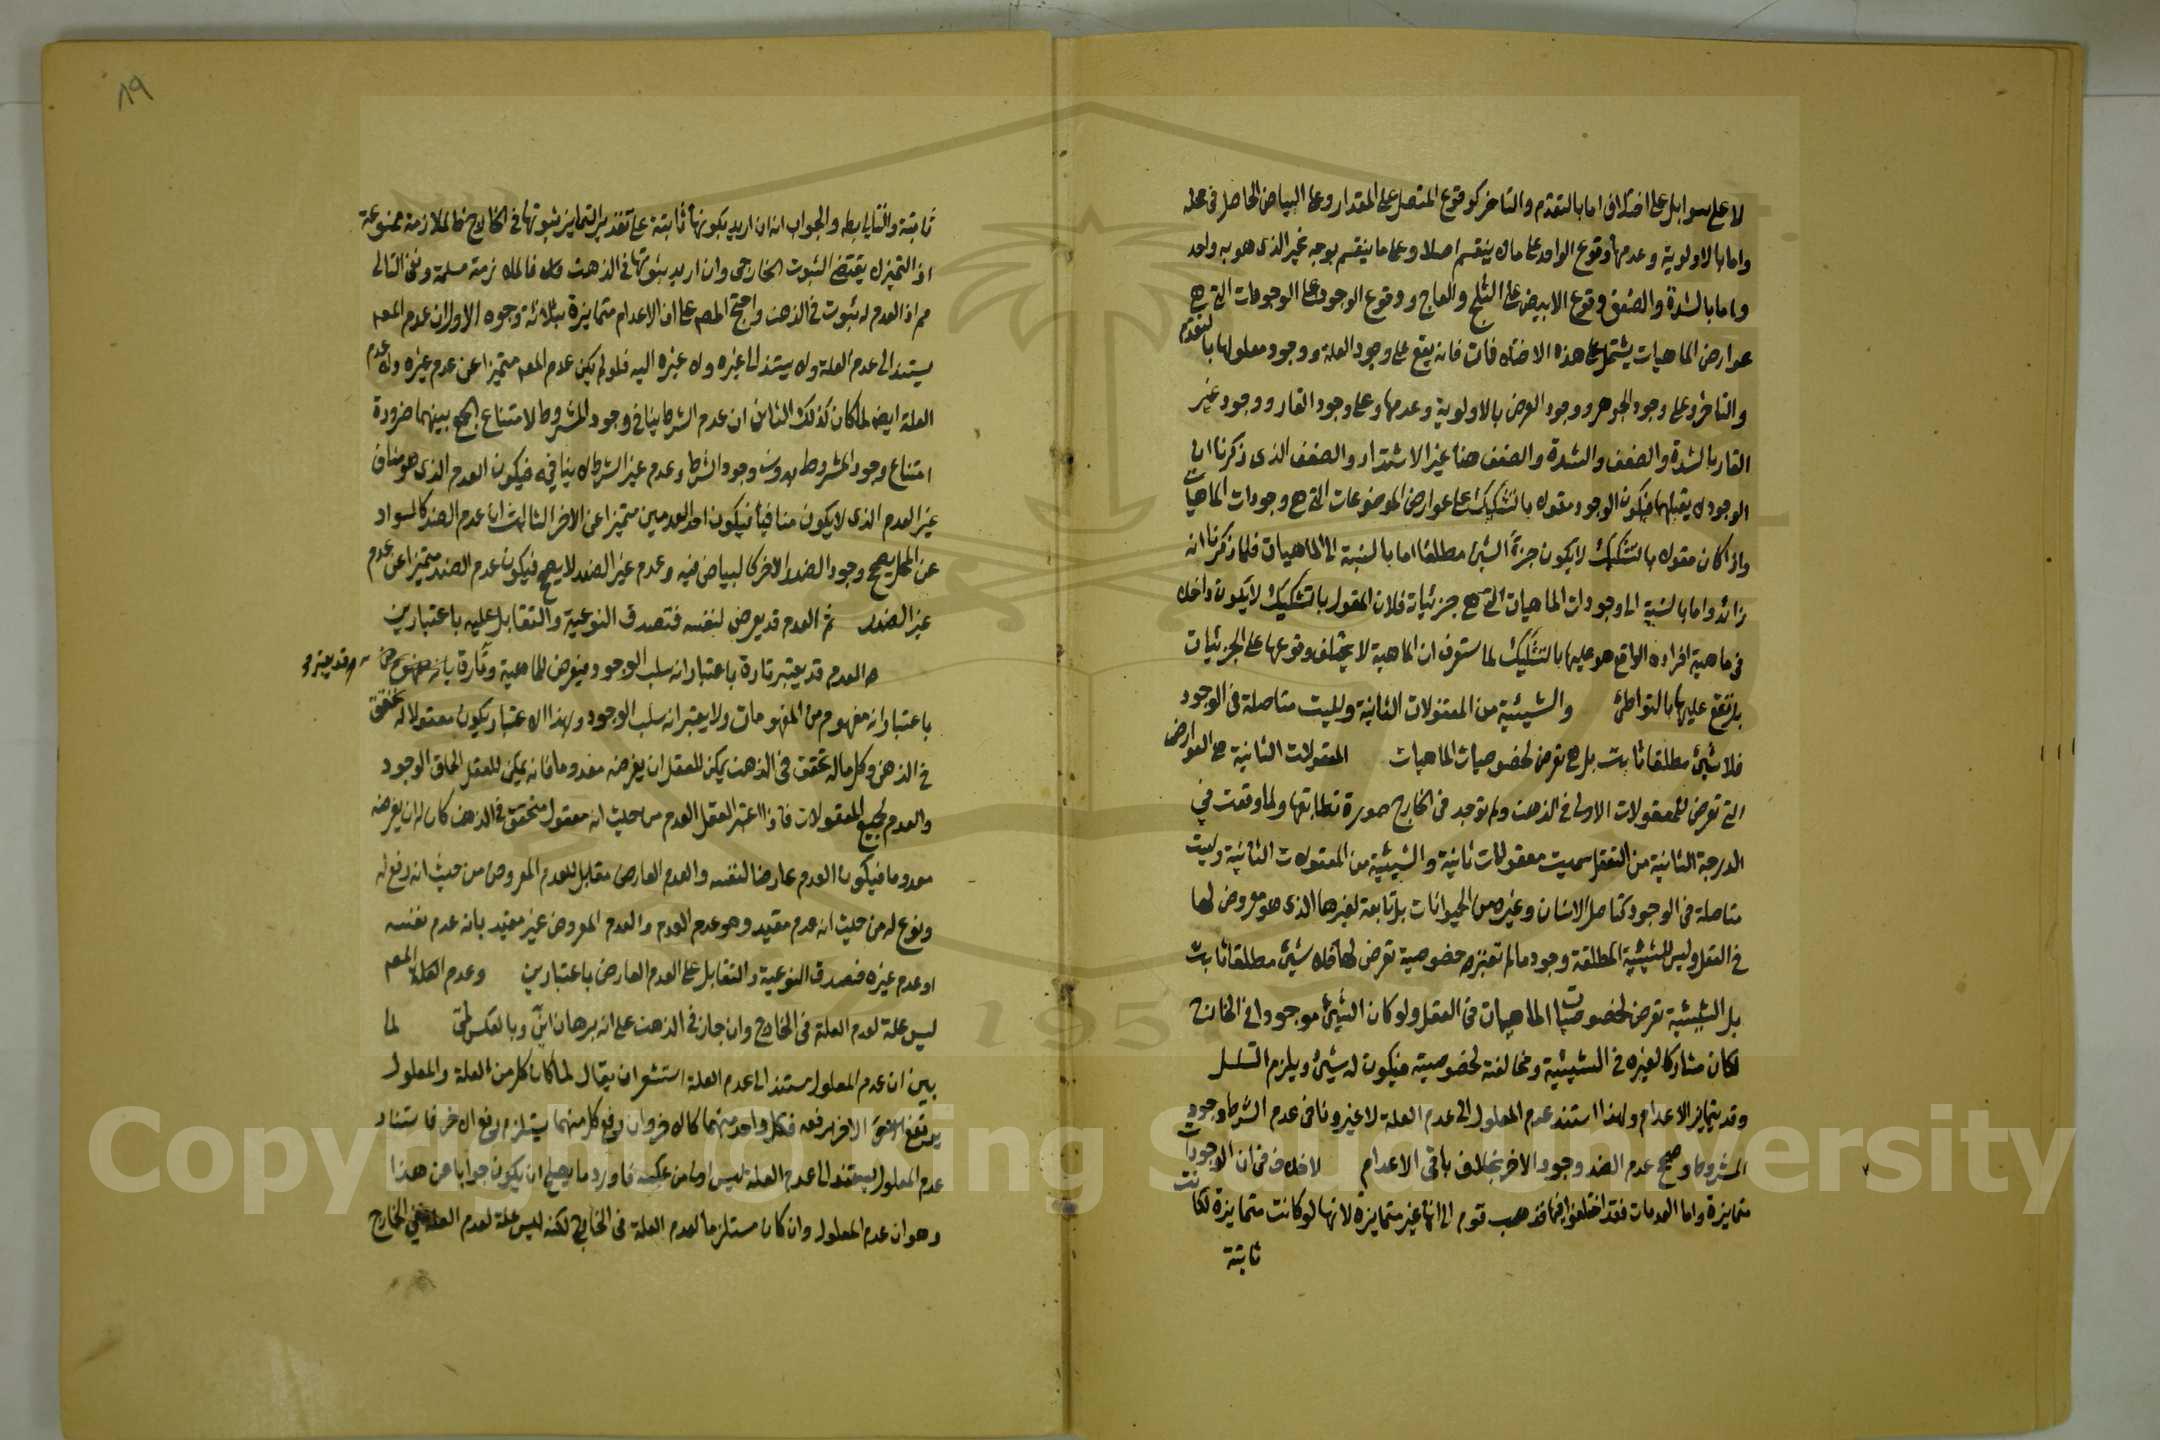 لا على سوا بل على اختلاف اما بالتقدم والتاخر كوقوع المتصل على المقدار وعلى البياض الحاصل فى محله
واما بالاولوية وعدمها وقوع الواحد على ما لا ينقسم اصلا وعلى ما ينقسم بوجه غير الذى هو به واحد
واما بالشدة والضعف وقوع الابيض على الثلج والعاج ووقوع الوجود على الوجودات التى هى
عوارض الماهيات يشتمل على هذه الاختلافات فانه يقع على وجود العلة ووجود معلولها بالتقدم
والتاخر وعلى وجود الجوهر ووجود العرض بالاولوية وعدمها وعلى وجود القار ووجود غير
القار بالشدة والضعف والشدة والضعف هنا غير الاشتداد والضعف الذى ذكرنا ان
الوجود لا يقبلهما فيكون الوجود مقولا بالتشكيك على عوارض الموضوعات التى هى وجودات الماهيات
واذا كان مقولا بالتشكيك لا يكون جزء الشئ مطلقا اما بالنسبة الى الماهيات فلما ذكرنا انه
زائد واما بالنسبة الى وجودات الماهيات التى هى جزئياته فلان المقول بالتشكيك لا يكون داخلا
فى ماهية افراده الواقع هو عليها بالتشكيك لما ستعرف ان الماهية لا يختلف وقوعها على الجزئيات
بل تقع عليها بالتواطئ والشيئية من المعقولات الثانية وليست متاصلة فى الوجود
فلا شئ مطلقا ثابت بل هى تعرض لخصوصيات الماهيات المعقولات الثانية هى العوارض
التى تعرض للمعقولات الاولى فى الذهن ولم توجد فى الخارج صورة تطابقها ولما وقعت فى
الدرجة الثانية من التعقل سميت معقولات ثانية والشيئية من المعقولات الثانية وليست
متاصلة فى الوجود كتاصل الانسان وغيره من الحيوانات بل تابعة لغيرها الذى هو معروض لها
فى العقل وليس للشيئية المطلقة وجود ما لم تعتبره خصوصية تعرض لها فلا شئ مطلقا ثابت
بل الشيئية تعرض لخصوصيات الماهيات فى العقل ولو كان الشئ موجودا فى الخارج
لكان مشاركا لغيره فى الشيئية ومخالفة لخصوصية فيكون له شئ ويلزم التسلسل
وقد يتمايز الاعدام ولهذا استند عدم المعلول الى عدم العلة لا غير ونافى عدم الشرط وجود
المشروط وصحح عدم الضد وجود الاخر بخلاف باقى الاعدام لا خلاف فى ان الوجودات
متمايزة واما العدمات فقد اختلفوا فيها فذهب قوم الى انها غير متمايزة لانها لو كانت متمايزة لكانت
ثابتة
٨٩
ثابتة والتالى باطل والجواب انه ان اريد بكونها ثابتة على تقدير التمايز ثبوتها فى الخارج فالملازمة ممنوعة
اذ التميز لا يقتضى الثبوت الخارجى وان اريد ثبوتها فى الذهن فالملازمة مسلمة ونفى التالى
مم اذ العدم له ثبوت فى الذهن واحتج المص على ان الاعدام متمايزة بثلاثة وجوه الاول ان عدم المعلم
يستند الى عدم العلة ولا يستند الى غيره ولا غيره اليه فلو لم يكن عدم المعلم متميزا عن عدم غيره ولا عدم
العلة ايض لما كان كذلك الثانى ان عدم الشرط ينافى وجود المشروط لامتناع الجمع بينهما ضرورة
امتناع وجود المشروط بدون وجود الشرط وعدم غير الشرط لا ينافيه فيكون العدم الذى هو مناف
غير العدم الذى لا يكون منافيا فيكون احد العدمين متميزا عن الاخر الثالث ان عدم الضد كالسواد
عن المحل يصحح وجود الضد الاخر كالبياض فيه وعدم غير الضد لا يصحح فيكون عدم الضد متميزا عن عدم
غير الضد ثم العدم قد يعرض لنفسه فتصدق النوعية والتقابل عليه باعتبارين
العدم قد يعتبر تارة باعتبار انه سلب الوجود فيعرض للماهية وتارة
قد يعتبر
باعتبار انه مفهوم من المفهومات ولا يعتبر انه سلب الوجود وبهذا الاعتبار يكون معقولا له تحقق
فى الذهن وكل ما له تحقق فى الذهن يمكن للعقل ان يفرضه معدوما فانه يمكن للعقل الحاق الوجود
والعدم لجميع المعقولات فاذا اعتبر العقل العدم من حيث انه معقول متحقق فى الذهن كان له ان يفرضه
معدوما فيكون العدم عارضا لنفسه والعدم العارض مقابل للعدم المعروض من حيث انه رفع له
ونوع له من حيث انه عدم مقيد وهو عدم العدم والعدم المعروض غير مقيد بانه عدم نفسه
او عدم غيره فتصدق النوعية والتقابل على العدم العارض باعتبارين وعدم المعلم
ليس علة لعدم العلة فى الخارج وان جاز فى الذهن على انه برهان انى وبالعكس لمى لما
بين ان عدم المعلول مستند الى عدم العلة استشعر ان يقال لما كان كل من العلة والمعلول
يرتفع الاخر برفعه فكل واحد منهما كالاخر وان رفع كل منهما يستلزم رفع الاخر فاستناد
عدم المعلول الى عدم العلة ليس اولى من عكسه فاورد ما يصلح ان يكون جوابا عن هذا
وهو ان عدم المعلول وان كان مستلزما لعدم العلة فى الخارج لكنه ليس علة لعدم العلة فى الخارج
Copyright © King Saud University
1957